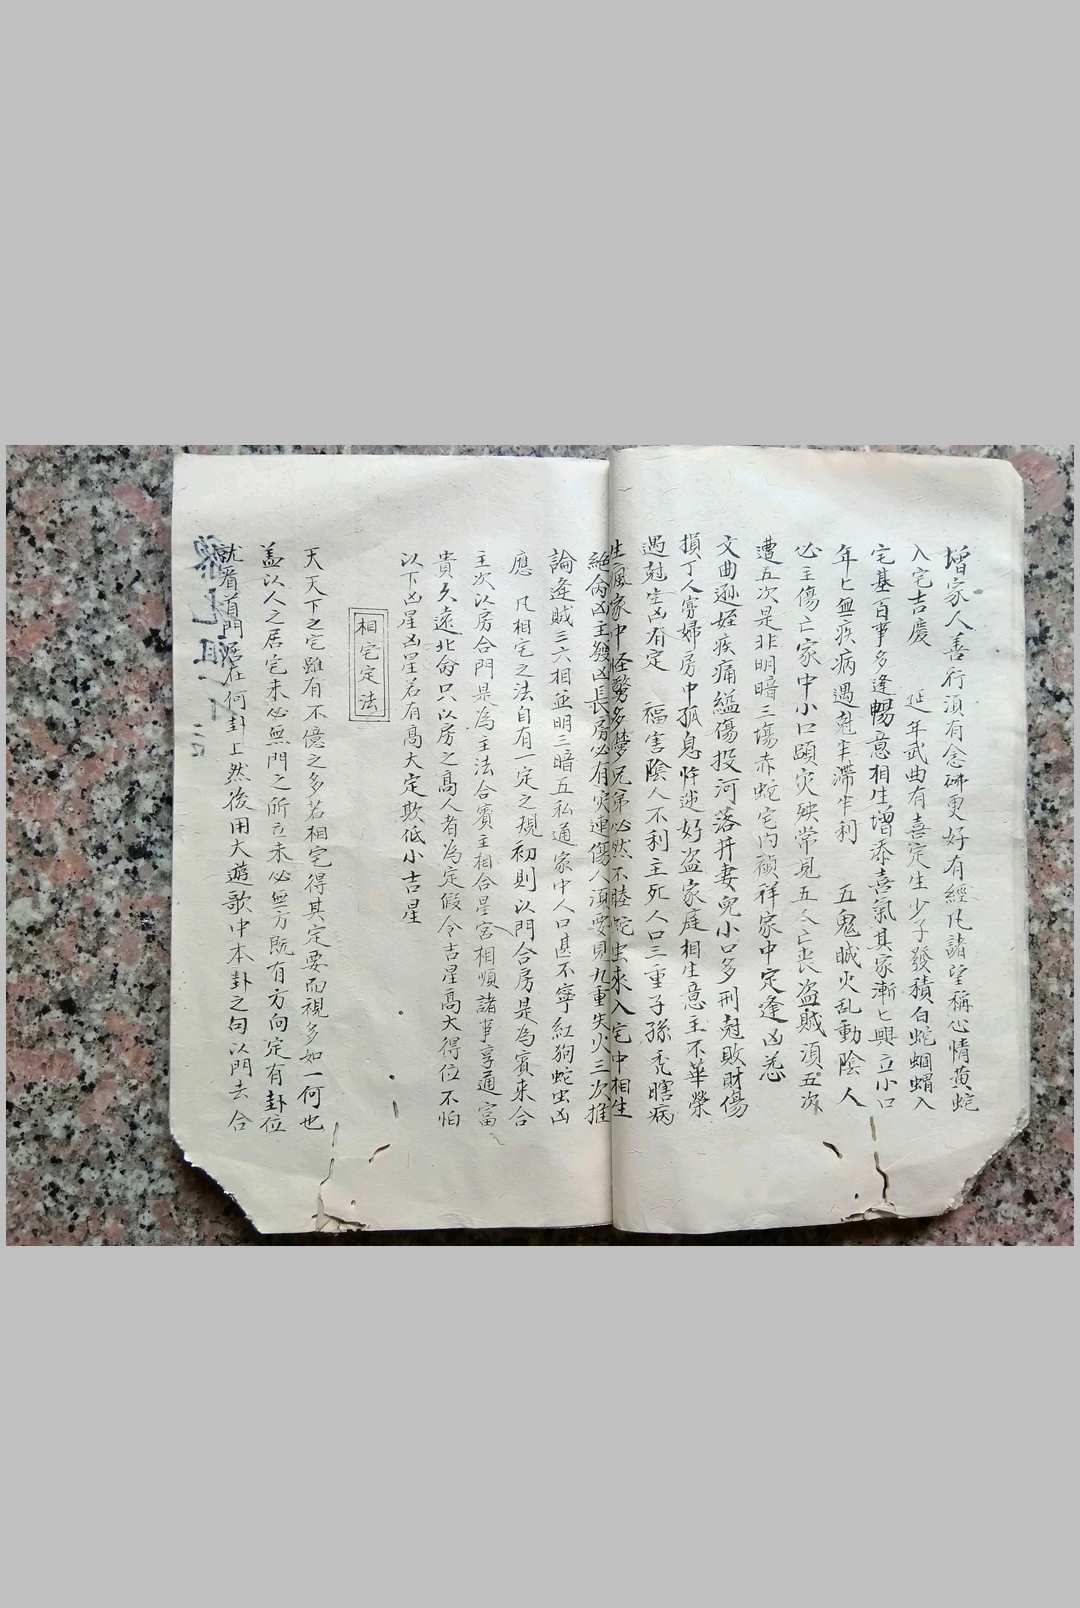 增家人善行須有念碑更好有經凡諸望稱心情黃蛇
入宅吉慶　延年武曲有喜定生少子發積白蛇蝈蝟入
宅基百事多逢暢意相生增添喜氣其家漸匕興立小口
年匕無疾病遇尅半滯半利　五鬼賊火乱動陰人
必主傷亡家中小口頤灾殃常見五人亡丧盗賊須五次
遭五次是非明暗三塲赤蛇宅内禎祥家中定逢凶悉
文曲逊婬疾痛緼傷投河落井妻兒小口多刑尅敗財傷
損丁人寡婦房中孤息忤逆好盗家庭相生意主不華榮
遇尅生凶有定　禍害陰人不利主死人口三重子孫秃瞎病
生風家中怪騖多夢兄弟必然不睦蛇虫來入宅中相生
絕命凶主發凶長房必有灾連傷人須要見九重失火三次推
論逢賊三六相並明三暗五私通家中人口甚不寧紅狗蛇虫凶
應　凡相宅之法自有一定之規初則以門合房是為賓來合
主次以房合門是為主法合賓主相合星宮相順諸事享通富
貴久遠北命只以房之高人者為定假令吉星高大得位不怕
以下凶星凶星若有高大定欺低小吉星
相宅定法
天天下之宅雖有不億之多若相宅得其定要而視多如一何也
盖以人之居宅未必無門之所立未必無方既有方向定有卦位
就着首門居在何卦上然後用大遊歌中本卦之句以門去合